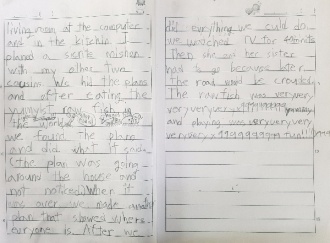 living room at the computer
and in the kitchin. I
planed a santa mishon
with my other two
cousins. We hid the plans
and after eating the
yummyist raw fish in
the world
we found the plans
and did what it said.
(the plan was going
around the house and
not noticed) When it
was over we made another
plan that showed where
everyone is. After we
did everything we could do
we watched TV for
Then she and her sister
has to go because later
The road woud be crowded.
The raw fish was very
very very
and playing was very very very
very very fun!!!